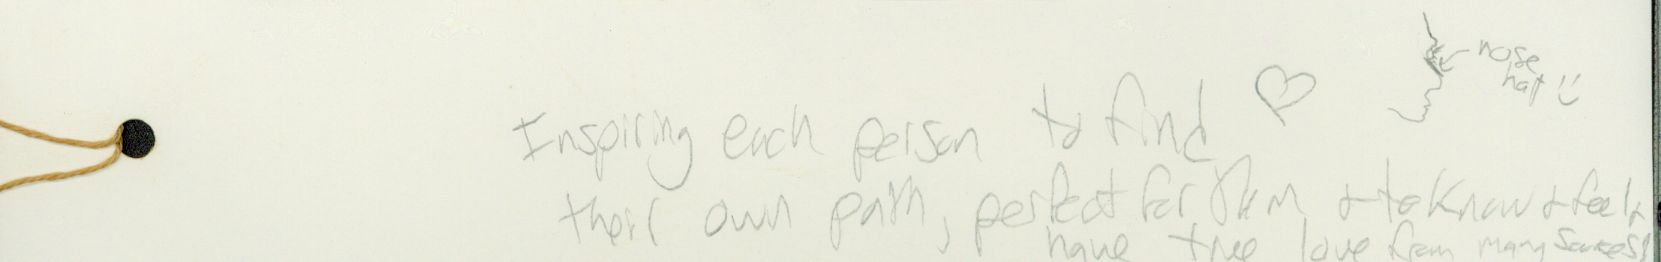 Inspiring each person to find
their own path, perfect for them & to know & feel &
have true love from many sources!
nose
hair